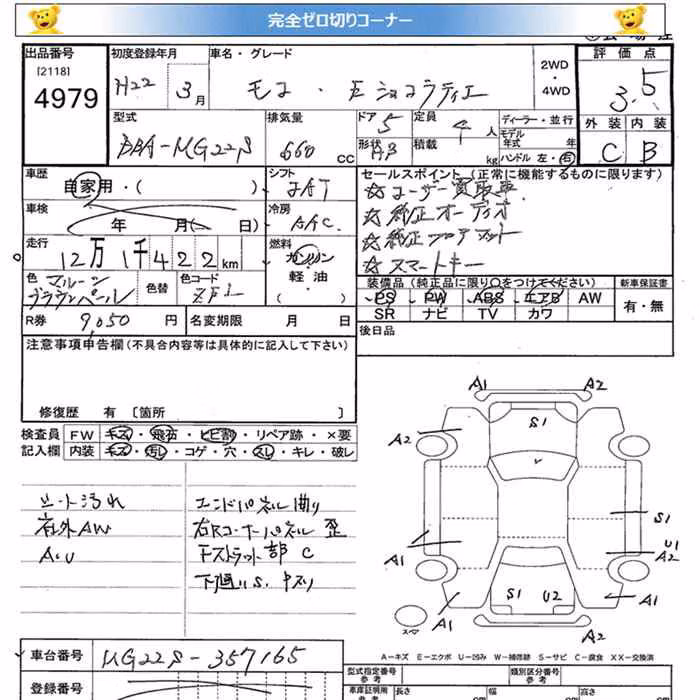 完全ゼロ切りコーナー
出品番号
[2118]
4979
初度登録年月
H22 3月
車名・グレード
モコ・E ショコラティエ
2WD
・
4WD
評価点
3.5
外装 内装
C B
型式
DBA-MG22S
排気量
660 CC
ドア 5
形状 HB
定員 4 人
積載 kg
ディーラー・並行
モデル年式 年
ハンドル 左・右
車歴
自家用・( )
シフト
IAT
車検
年 月( 日)
冷房
AAC
走行
12万1千422km
燃料
ガソリン
軽・油
( )
色 マルーン
ブラウンパール
色替
色コード
ZFL
R券 9,050 円
名変期限 月 日
セールスポイント(正常に機能するものに限ります)
☆ユーザー買取車
☆純正オーディオ
☆純正フロアマット
☆スマートキー
装備品(純正品に限り○をつけてください)
PS PW ABS エアB AW
SR ナビ TV カワ
新車保証書
有・無
後日品
注意事項申告欄(不具合内容等は具体的に記入して下さい)
修復歴 有〔箇所 〕
検査員 FW キズ・飛石・ヒビ割・リペア跡・×要
記入欄 内装 キズ・汚れ・コゲ・穴・スレ・キレ・破レ
シート汚れ
社外AW
A.U
エンドパネル曲り
右Rコーナーパネル歪
下廻りS.
A1 A2
S1
A2
S1
A1
U1
A2
S1 U2
A1 A1
A2
スペア
A-キズ E-エクボ U-凹み W-補修跡 S-サビ C-腐食 XX-交換済
車台番号 MG22S-357165
登録番号
型式指定番号
参考
類別区分番号
参考
車庫証明用
参考
長さ 幅 高さ